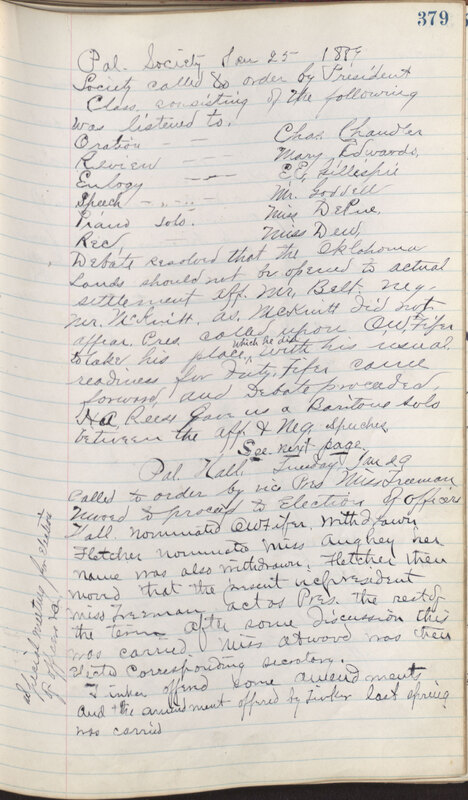 379
Pal. Society Jan 25 1889
Society called to order by President
Class consisting of the following
was listened to.
Oration - — Chas. Chandler
Review — Mary Edwards,
Eulogy — EE, Gillespie
Speech - - - - Mr. Goddell
Piano solo. Miss DePue,
Rec Miss Dew,
Debate resolved that the Oklahoma
Lands should not be opened to actual
settlement aff. Mr. Belt. neg.
Mr. McKnitt. as McKnitt did not
appear Pres. called upon OW, Fifer
to take his place, which he did with his usual
readiness for duty. Fifer came
forward and Debate proceeded.
HA, Reese Gave us a Baritone solo
between the aff. & Neg speeches
See next page
Pal. Hall, Tuesday Jan 29
Called to order by vice Pres Miss Freeman
Moved to proceed to Election of officers
Tall. nominated OW Fifer, withdrawn
Fletcher nominate Miss Aughey her
name was also withdrawn; Fletcher then
moved that the present vice president
miss Freeman act as Pres. the rest of
the term after some discussion this
was carried Miss Atwood was then
elected corresponding secretary.
Tinker offered some amendments
and the amendment offered by Tinker last spring
was carried
special meeting for election
of officers